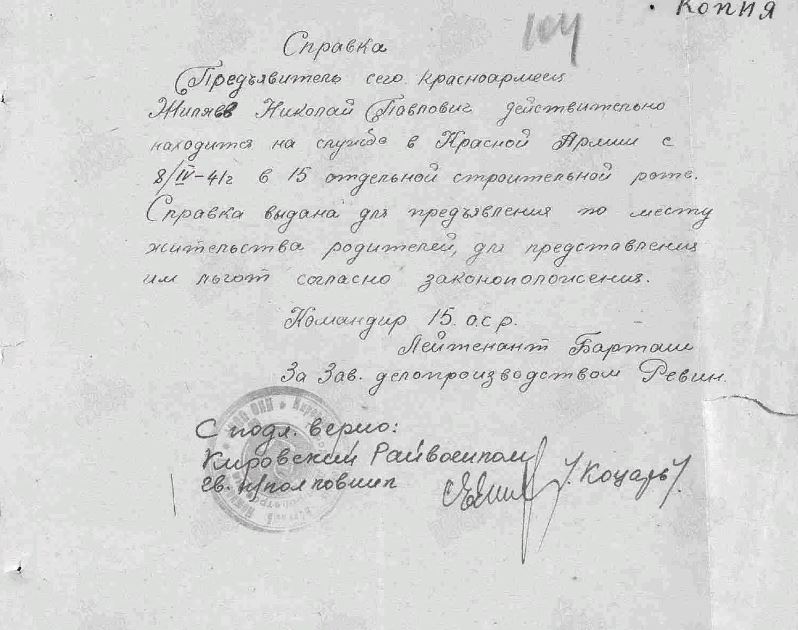 Копия
104
Справка
Предъявитель сего красноармеец
Жиляев Николай Павлович действительно
находится на службе в Красной Армии с
8/IV-41г в 15 отдельной строительной роте.
Справка выдана для предъявления по месту
жительства родителей, для представления
им льгот согласно законоположения.
Командир 15 о.с.р.
Лейтенант Барташ
За Зав. делопроизводством Ревин.
С подл. верно:
Кировский Райвоенком
/Коцарь/.